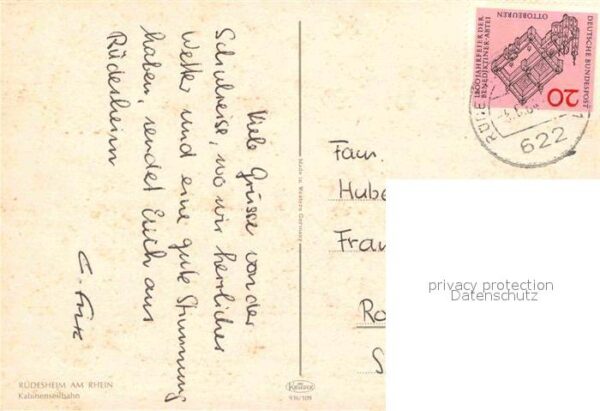 Viele Grüsse von der
Schulreise, wo wir herrliches
Wetter und eine gute Stimmung
haben, sendet Euch aus
Rüdesheim
RÜDESHEIM AM RHEIN
Kabinenseilbahn
Made in Western Germany
Krüger
Fam.
Hube
Fran
R
S
DEUTSCHE BUNDESPOST
OTTOBEUREN
1200 JAHRFEIER DER
BENEDIKTINER-ABTEI
20
RÜDE
622
privacy protection
Datenschutz